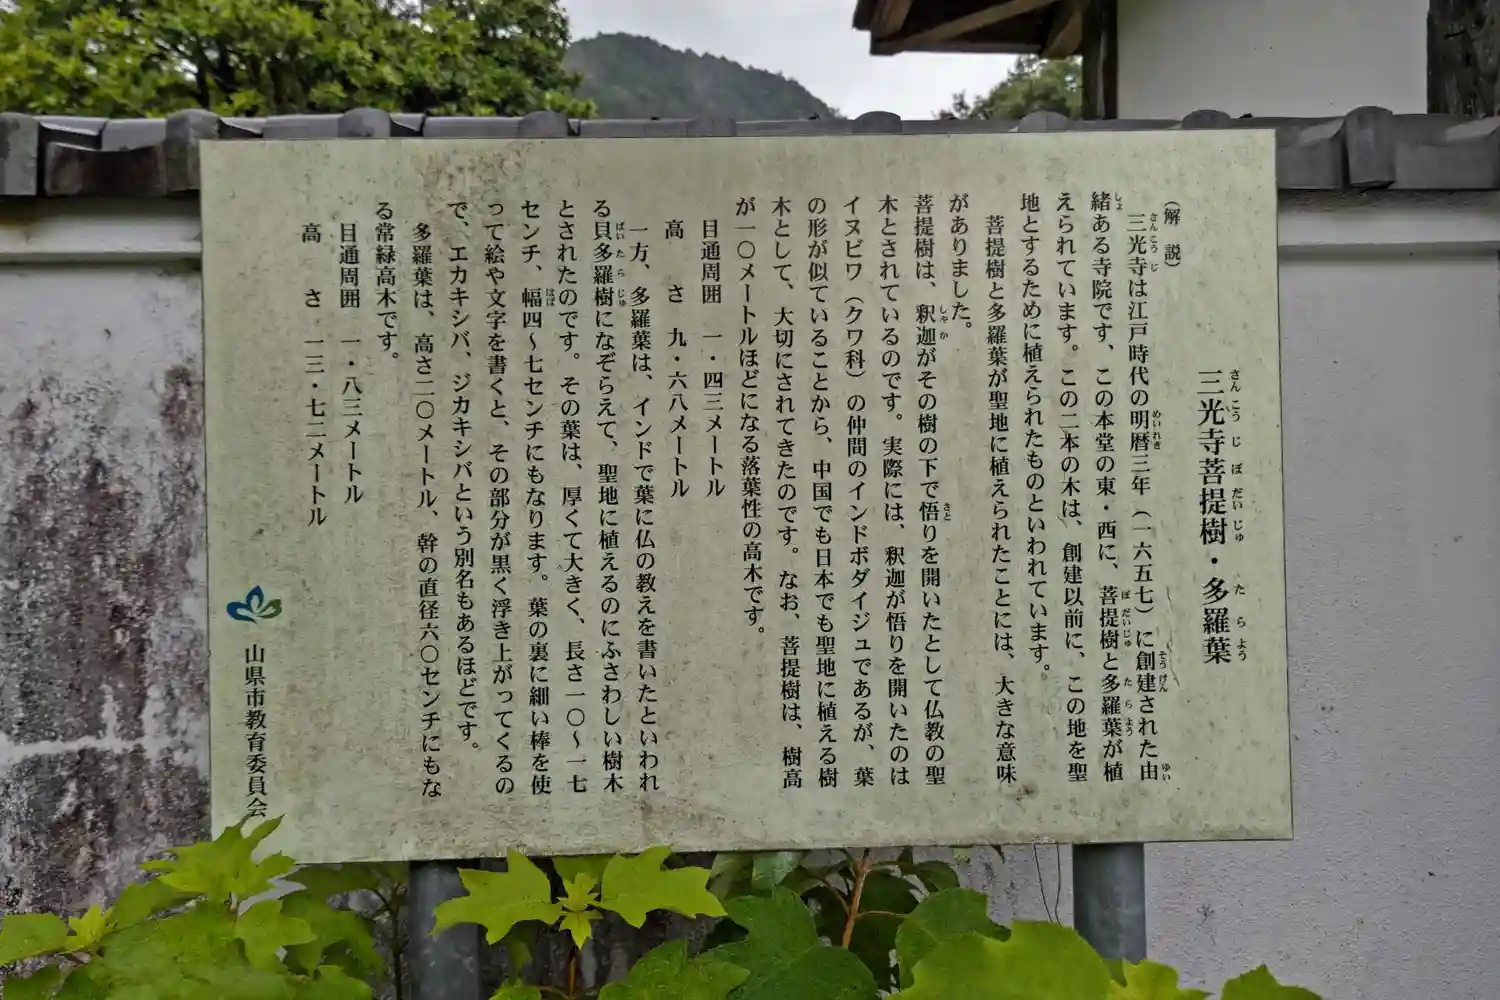 三光寺菩提樹・多羅葉
さんこうじぼだいじゅ たらよう
(解 説)
三光寺は江戸時代の明暦三年(一六五七)に創建された由
さんこうじ めいれき そうけん ゆい
緒ある寺院です、この本堂の東・西に、菩提樹と多羅葉が植
しょ ぼだいじゅ たらよう
えられています。この二本の木は、創建以前に、この地を聖
地とするために植えられたものといわれています。
菩提樹と多羅葉が聖地に植えられたことには、大きな意味
がありました。
菩提樹は、釈迦がその樹の下で悟りを開いたとして仏教の聖
しゃか さと
木とされているのです。実際には、釈迦が悟りを開いたのは
イヌビワ(クワ科)の仲間のインドボダイジュであるが、葉
の形が似ていることから、中国でも日本でも聖地に植える樹
木として、大切にされてきたのです。なお、菩提樹は、樹高
が一〇メートルほどになる落葉性の高木です。
目通周囲 一・四三メートル
高 さ 九・六八メートル
一方、多羅葉は、インドで葉に仏の教えを書いたといわれ
る貝多羅樹になぞらえて、聖地に植えるのにふさわしい樹木
ばいたらじゅ
とされたのです。その葉は、厚くて大きく、長さ一〇〜一七
センチ、幅四〜七センチにもなります。葉の裏に細い棒を使
はば
って絵や文字を書くと、その部分が黒く浮き上がってくるの
で、エカキシバ、ジカキシバという別名もあるほどです。
多羅葉は、高さ二〇メートル、幹の直径六〇センチにもな
る常緑高木です。
目通周囲 一・八三メートル
高 さ 一三・七二メートル
山県市教育委員会